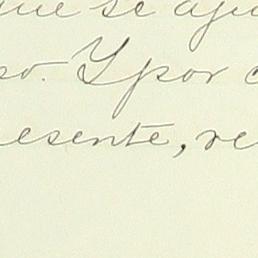 que se aju
so. Y por
esente, re